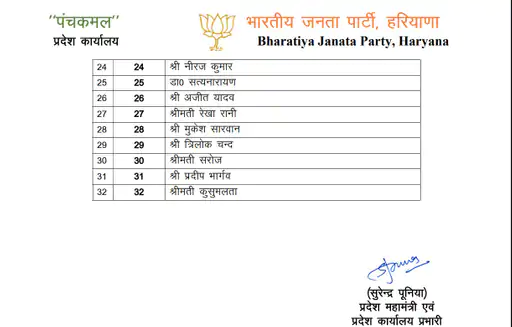 "पंचकमल"
प्रदेश कार्यालय
भारतीय जनता पार्टी, हरियाणा
Bharatiya Janata Party, Haryana
24 24 श्री नीरज कुमार
25 25 डा0 सत्यनारायण
26 26 श्री अजीत यादव
27 27 श्रीमती रेखा रानी
28 28 श्री मुकेश सारवान
29 29 श्री त्रिलोक चन्द
30 30 श्रीमती सरोज
31 31 श्री प्रदीप भार्गव
32 32 श्रीमती कुसुमलता
(सुरेन्द्र पूनिया)
प्रदेश महामंत्री एवं
प्रदेश कार्यालय प्रभारी